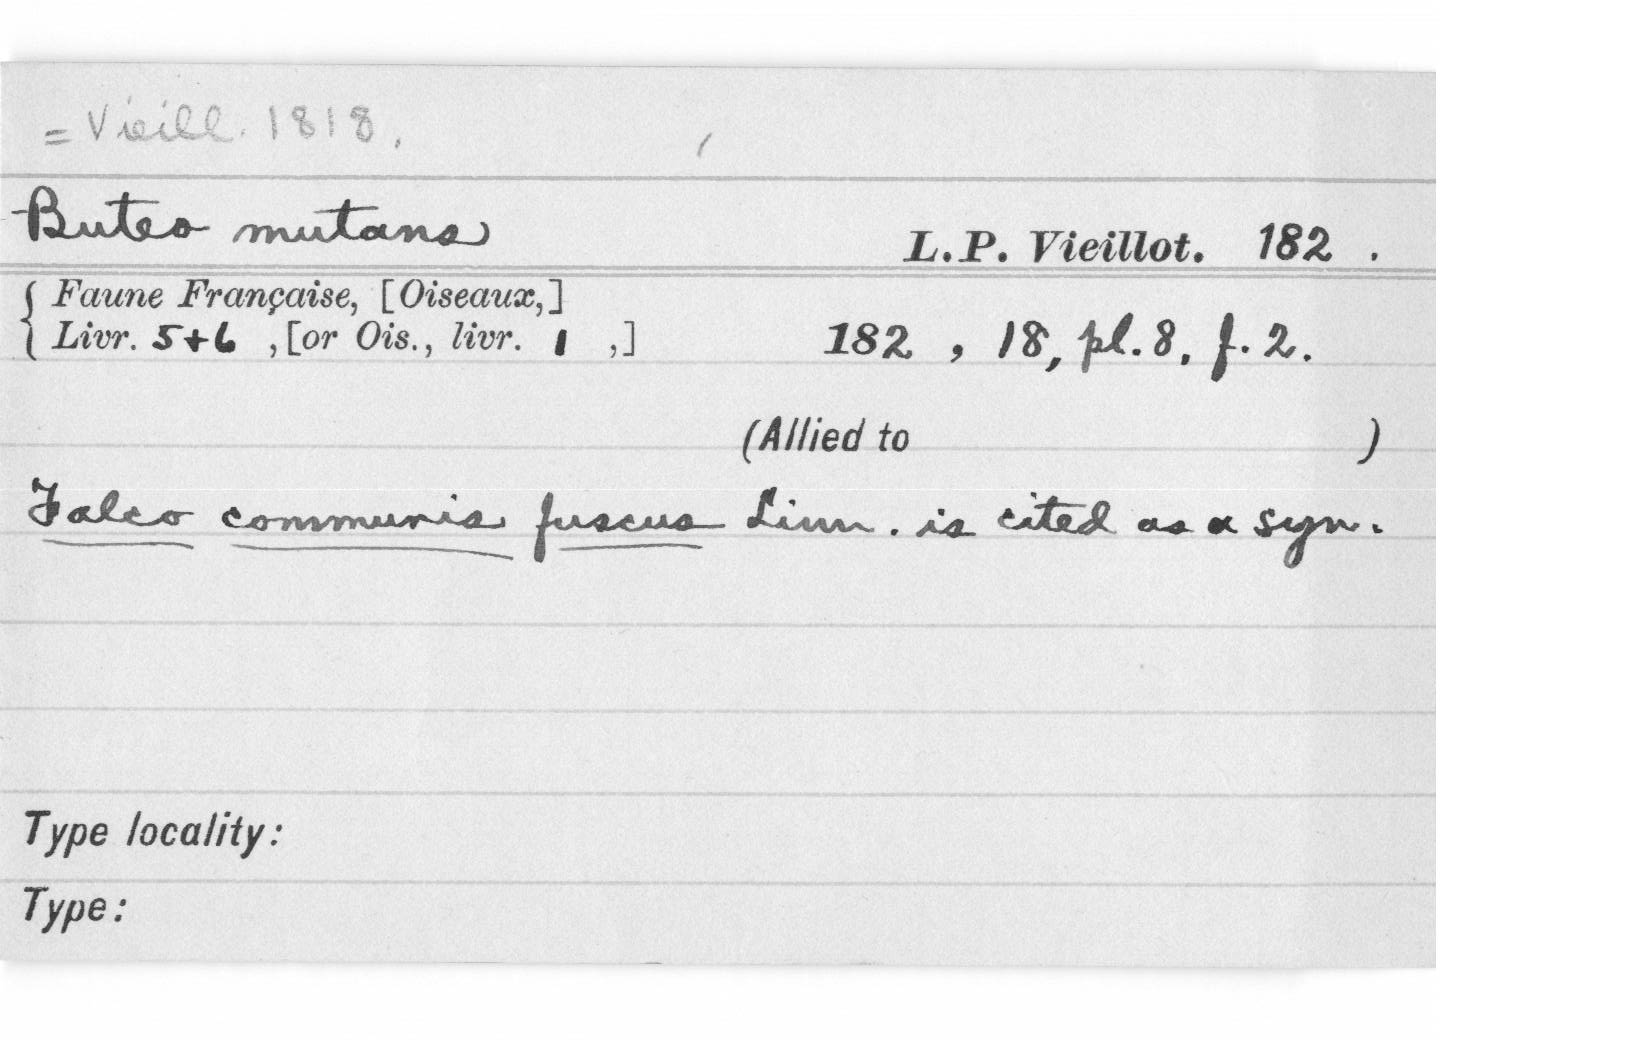 = Vieill. 1818.
Buteo mutans
L. P. Vieillot. 182 .
Faune Française, [Oiseaux,]
Livr. 5+6 , [or Ois., livr. 1 ,] 182 , 18, pl. 8, f. 2.
(Allied to )
Falco communis fuscus Linn. is cited as a syn.
Type locality:
Type: